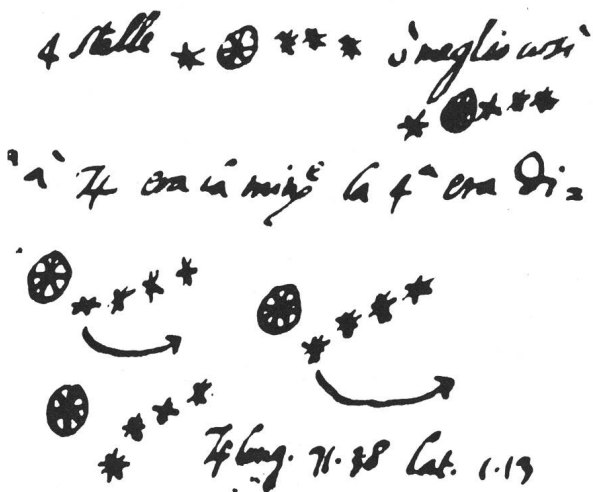 4 stelle ò meglio così
♃ era la minᵉ la 4ᵃ era di=
♃ long. 71.38 Lat. 1.13